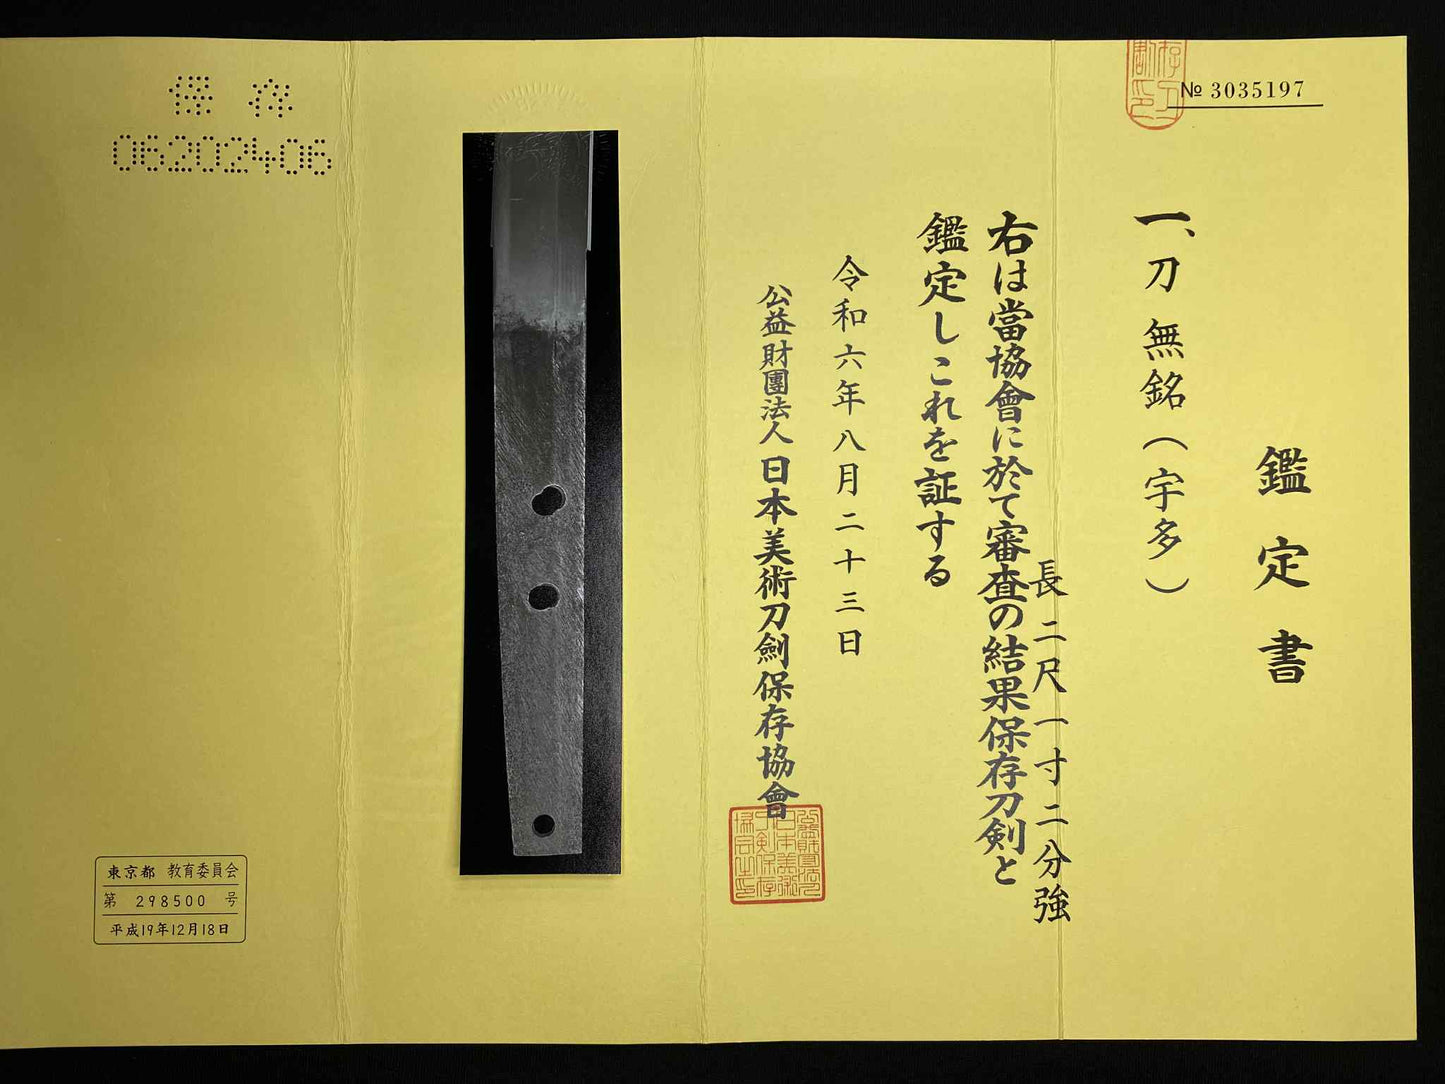 № 3035197
鑑定書
一、刀 無銘(宇多)
長 二尺一寸二分強
右は當協會に於て審査の結果保存刀剣と
鑑定しこれを証する
令和六年八月二十三日
公益財團法人 日本美術刀劍保存協會
保存
06202406
東京都 教育委員会
第 298500 号
平成19年12月18日